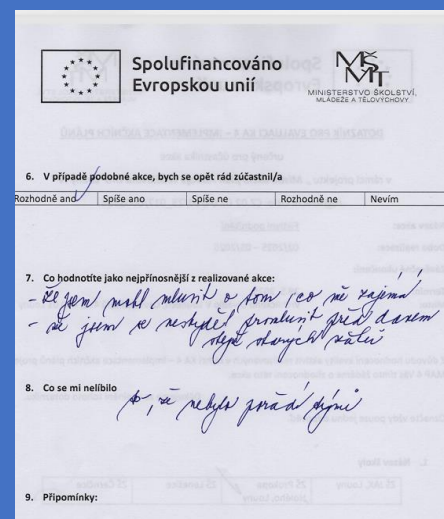 Spolufinancováno
Evropskou unií
MŠMT
MINISTERSTVO ŠKOLSTVÍ,
MLÁDEŽE A TĚLOVÝCHOVY
DOTAZNÍK PRO EVALUACI KA 4 – IMPLEMENTACE AKČNÍCH PLÁNŮ
6. V případě podobné akce, bych se opět rád zúčastnil/a
Rozhodně ano Spíše ano Spíše ne Rozhodně ne Nevím
7. Co hodnotíte jako nejpřínosnější z realizované akce:
- že jsem mohl mluvit o tom, co mě zajímá
- že jsem se nestyděl promluvit před davem
stejně starých žáků
8. Co se mi nelíbilo
to, že nebyla pořádí
9. Připomínky: